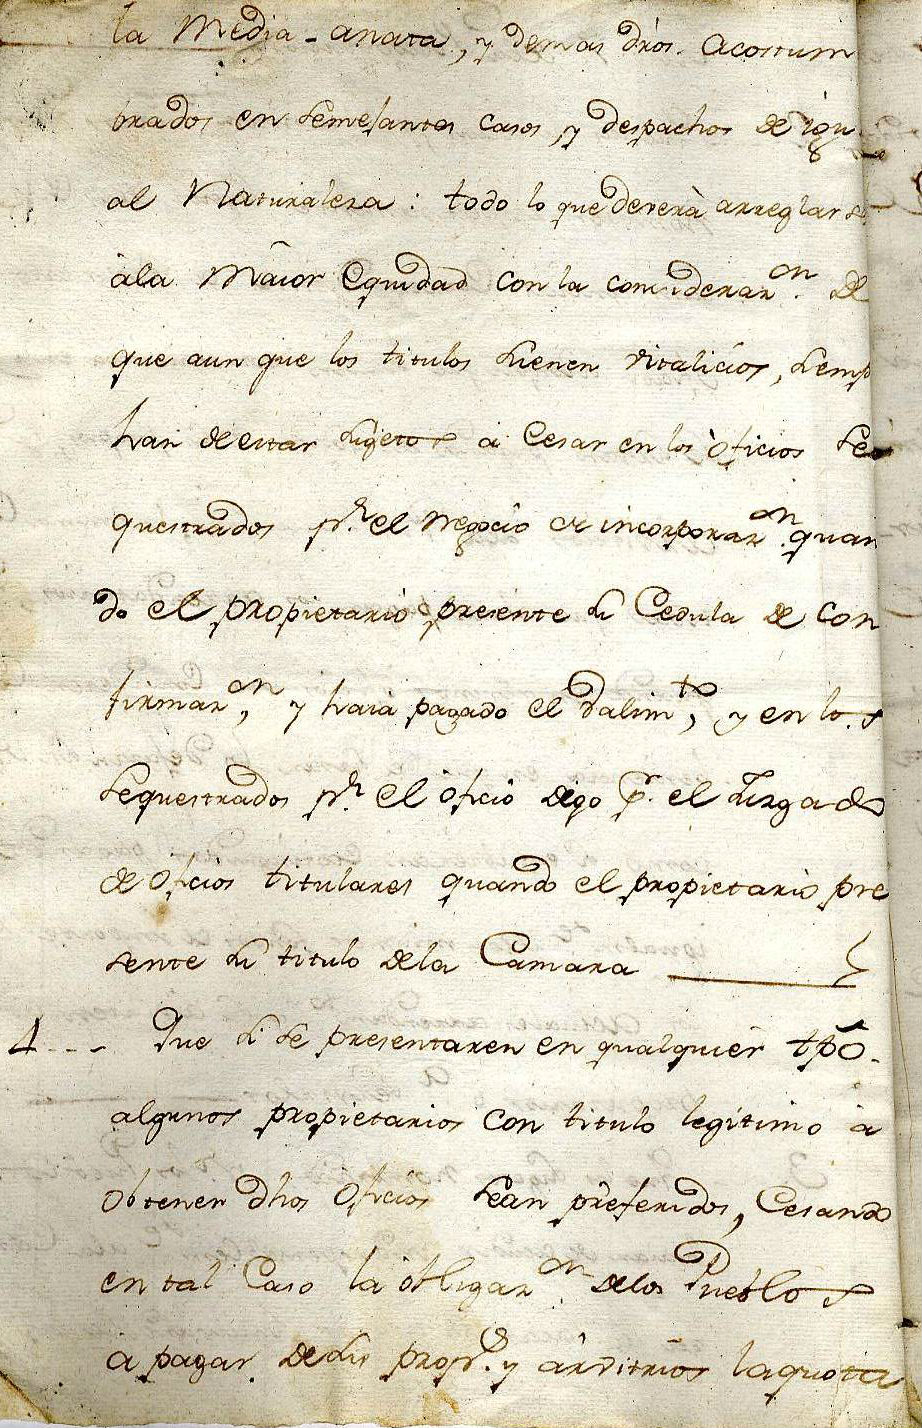 la Media-anata, y demas dros. acostum
brados en semejantes casos, y despachos de igu
al Naturaleza: todo lo que deverà arreglarse
àla Maior Equidad con la considerazon. de
que aun que los titulos suenen vitalicios, semp
han de estar sugetos a Cesar en los oficios se
questrados pr. el Negocio de incorporazon. quan
do el propietario presente su Cedula de con
firmazon, y haia pagado el Valimto, y en los
sequestrados pr. el oficio digo pr. el Juzgado
de oficios titulares quando el propietario pre
sente su titulo dela Camara
4... Que si se presentaren en qualquier tpô.
algunos propietarios con titulo legitimo à
obtener dhos oficios sean preferidos, Cesando
en tal Caso la obligazon. delos Pueblos
à pagar de sus props. y arvitrios la quota